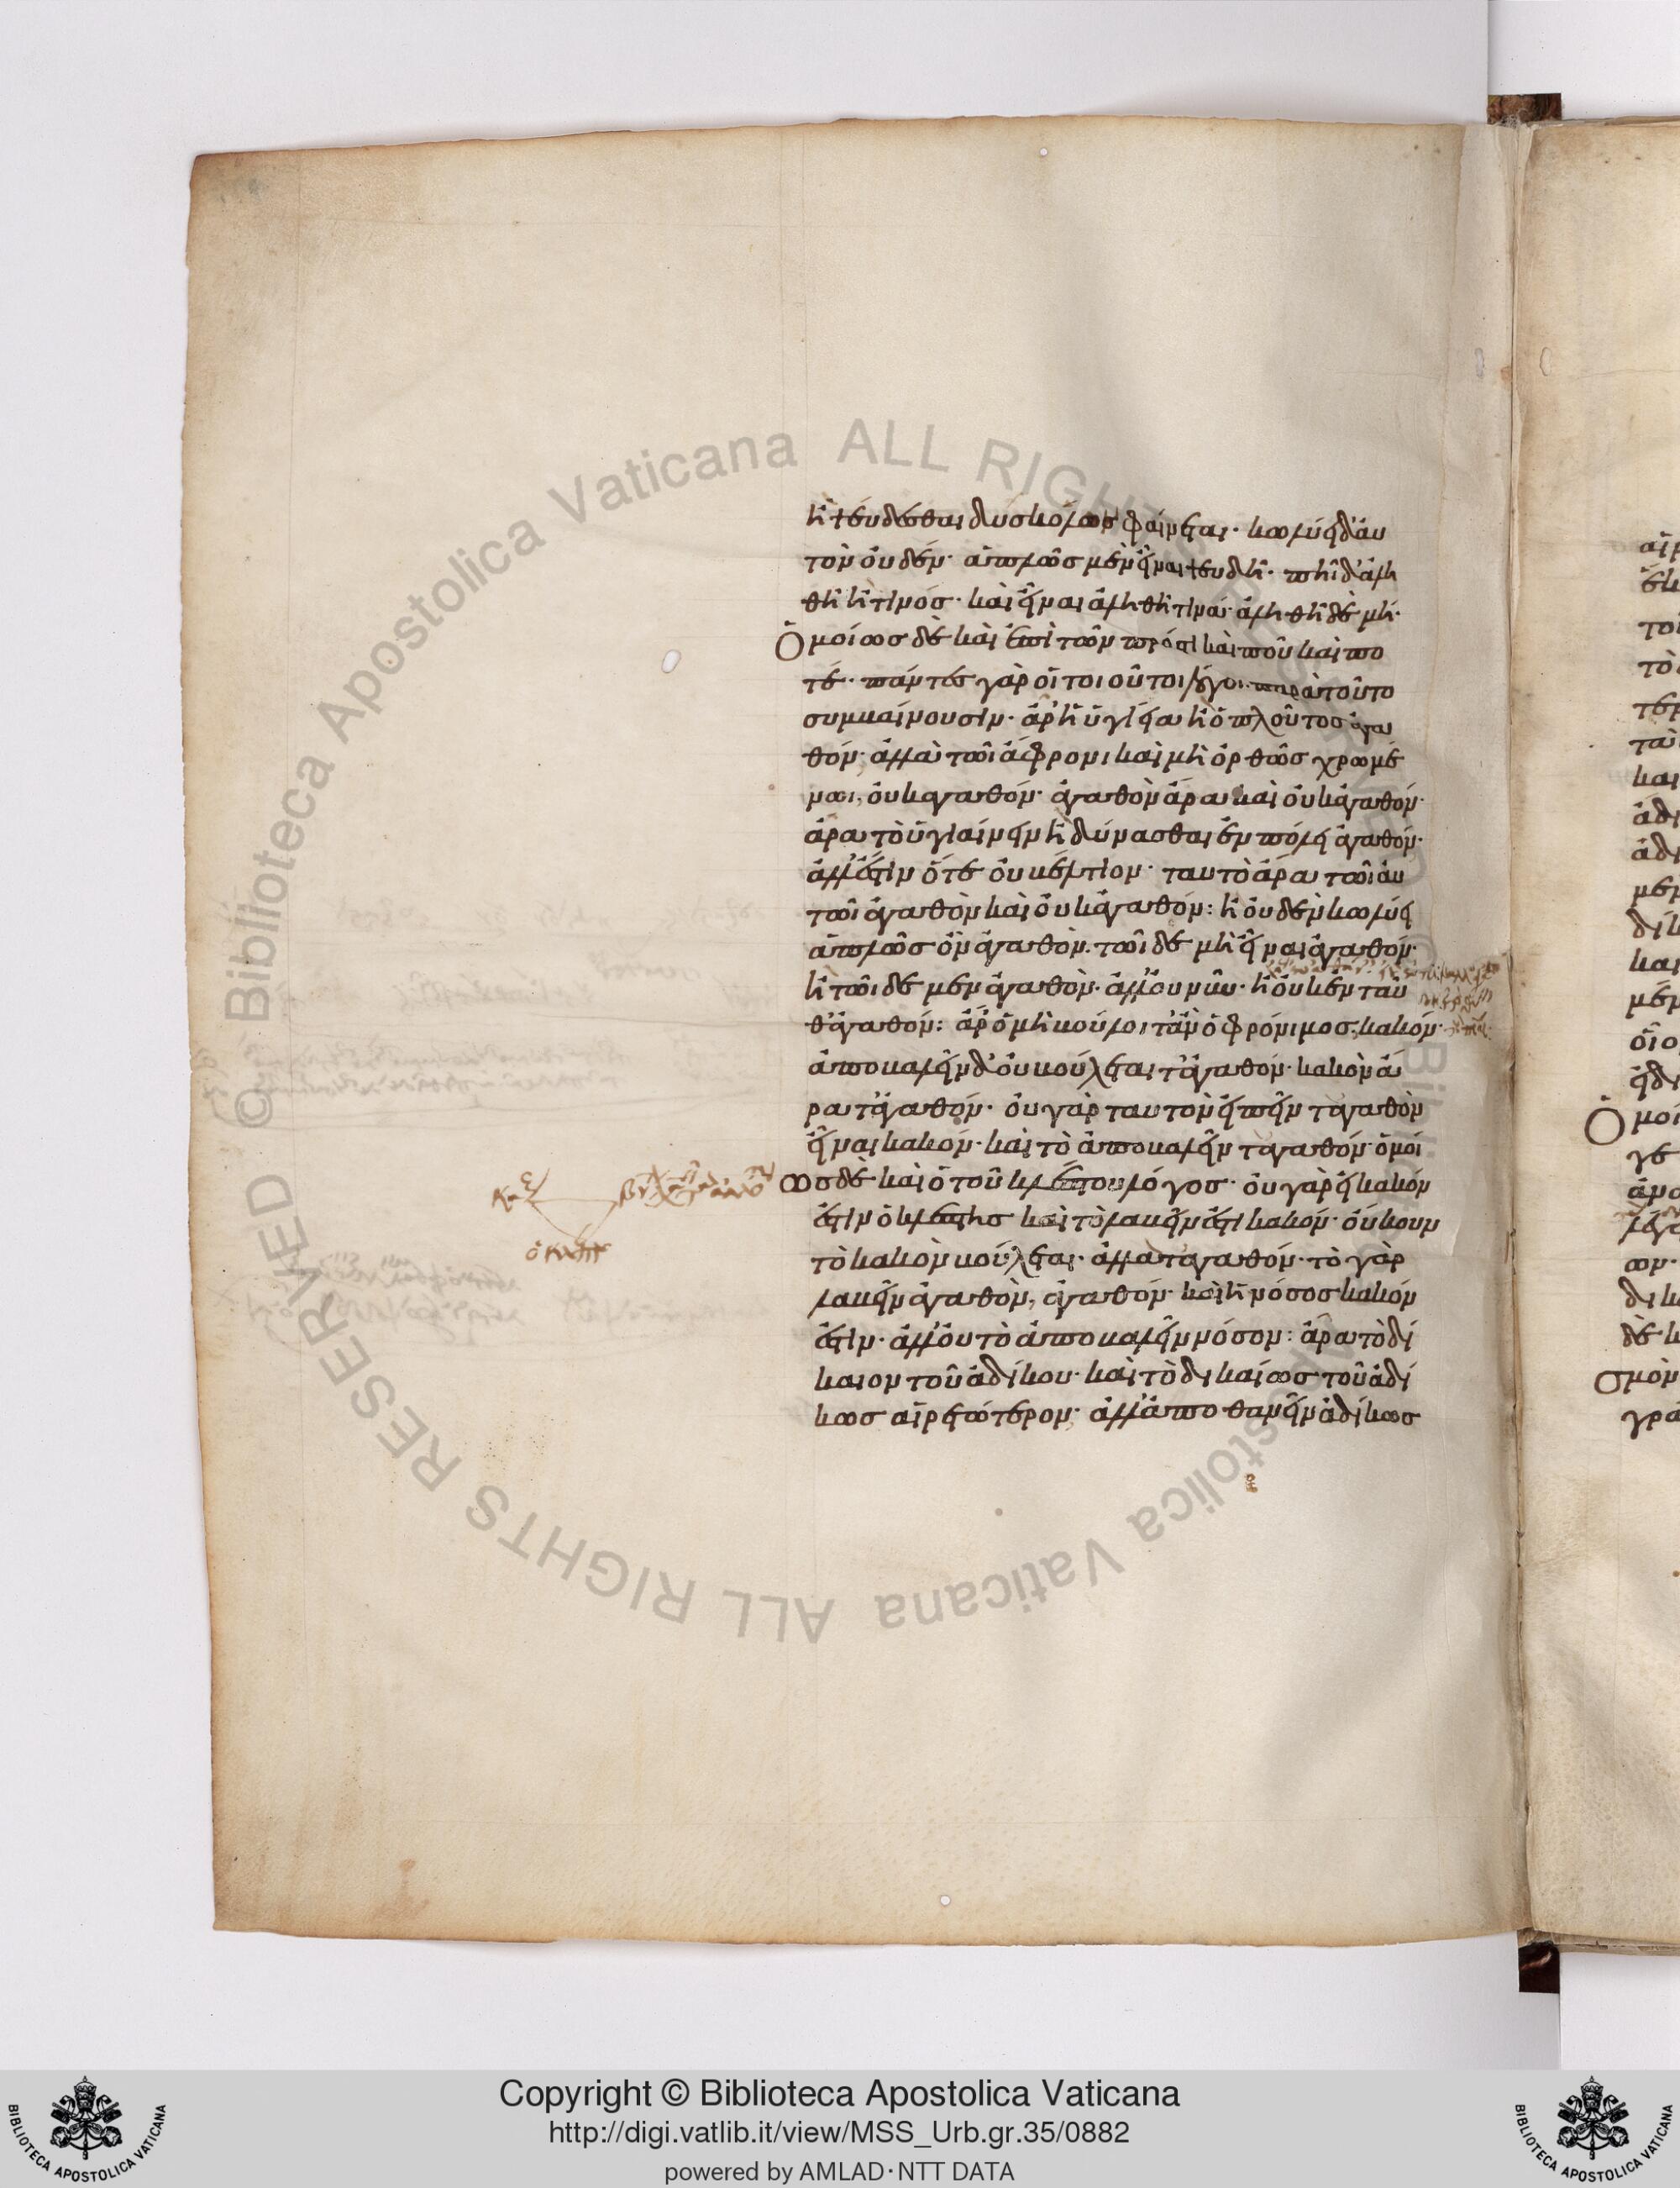 ἢ ψεύδεσθαι δυσκόλως φαίνεται· κωλύει δ' αὐ
τὸν οὐδέν· ἁπλῶς μὲν εἶναι ψευδῆ· πῆ δ' ἀλη
θῆ ἤ τινός· καὶ εἶναι ἀληθῆ τινά· ἀληθῆ δὲ μή·
Ὁμοίως δὲ καὶ ἐπὶ τῶν πρός τι καὶ ποῦ καὶ πο
τέ· πάντες γὰρ οἱ τοιοῦτοι λόγοι παρὰ τοῦτο
συμβαίνουσιν· ἆρ' ἡ ὑγίεια ἢ ὁ πλοῦτος ἀγα
θόν· ἀλλὰ τῶι ἄφρονι καὶ μὴ ὀρθῶς χρωμέ
νωι, οὐκ ἀγαθόν· ἀγαθὸν ἄρα καὶ οὐκ ἀγαθόν·
ἆρα τὸ ὑγιαίνειν ἢ δύνασθαι ἐν πόλει ἀγαθόν·
ἀλλ' ἔστιν ὅτε οὐ βέλτιον· ταυτὸ ἄρα τῶι αὐ
τῶι ἀγαθὸν καὶ οὐκ ἀγαθόν: ἢ οὐδὲν κωλύει
ἁπλῶς ὂν ἀγαθὸν· τῶιδε μὴ εἶναι ἀγαθόν·
ἢ τῶιδε μὲν ἀγαθὸν· ἀλλ' οὐ νῦν· ἢ οὐκ ἐνταῦ
θ' ἀγαθόν: ἆρ' ὃ μὴ βούλοιτ' ἂν ὁ φρόνιμος, κακόν·
ἀποβαλεῖν δ' οὐ βούλεται τἀγαθόν· κακὸν ἄ
ρα τἀγαθόν· οὐ γὰρ ταυτὸν εἰπεῖν τἀγαθὸν
εἶναι κακόν· καὶ τὸ ἀποβαλεῖν τἀγαθόν· ὁμοί
ως δὲ καὶ ὁ τοῦ κλέπτου λόγος· οὐ γὰρ εἰ κακόν
ἐστιν ὁ κλέπτης καὶ τὸ λαβεῖν ἐστὶ κακόν· οὔκουν
τὸ κακὸν βούλεται· ἀλλὰ τἀγαθόν· τὸ γὰρ
λαβεῖν ἀγαθὸν, ἀγαθόν· καὶ ἡ νόσος κακόν
ἐστιν· ἀλλ' οὐ τὸ ἀποβαλεῖν νόσον: ἆρα τὸ δί
καιον τοῦ ἀδίκου· καὶ τὸ δικαίως τοῦ ἀδί
κως αἱρετώτερον· ἀλλ' ἀποθανεῖν ἀδίκως
αἱρ
τὸ
τερ
και
Ὁμοί
γε
λέγο
ων·
δὲ
σμὸν
γρα
© Biblioteca Apostolica Vaticana ALL RIGHTS RESERVED
Copyright © Biblioteca Apostolica Vaticana
http://digi.vatlib.it/view/MSS_Urb.gr.35/0882
powered by AMLAD·NTT DATA
BIBLIOTECA APOSTOLICA VATICANA
BIBLIOTECA APOSTOLICA VATICANA